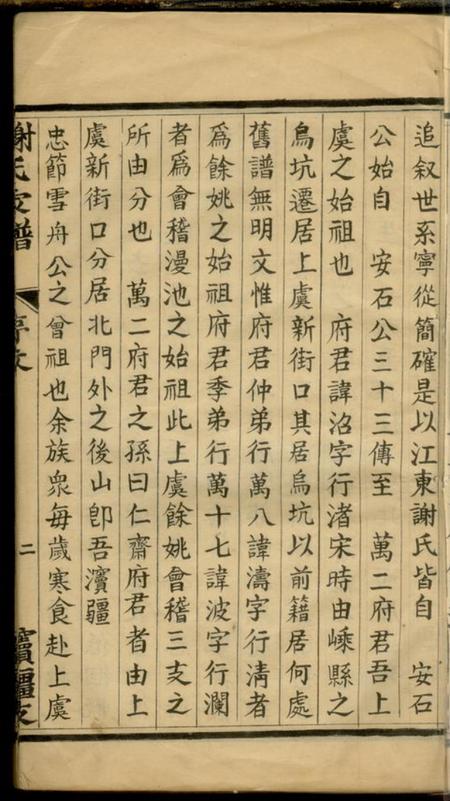 追叙世系寧從簡確是以江東謝氏皆自　安石
公始自　安石公三十三傳至　萬二府君吾上
虞之始祖也　府君諱沼字行渚宋時由嵊縣之
烏坑遷居上虞新街口其居烏坑以前籍居何處
舊譜無明文惟府君仲弟行萬八諱濤字行淸者
爲餘姚之始祖府君季弟行萬十七諱波字行瀾
者爲會稽漫池之始祖此上虞餘姚會稽三支之
所由分也　萬二府君之孫曰仁齋府君者由上
虞新街口分居北門外之後山卽吾瀆疆
忠節雪舟公之曾祖也余族衆每歲寒食赴上虞
謝氏支譜　序文　二